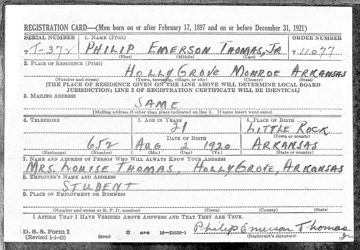 REGISTRATION CARD—(Men born on or after February 17, 1897 and on or before December 31, 1921)
SERIAL NUMBER 1. NAME (Print) ORDER NUMBER
T-372 PHILIP EMERSON THOMAS, JR. 11077
(First) (Middle) (Last)
2. PLACE OF RESIDENCE (Print)
HOLLY GROVE MONROE ARKANSAS
(Number and street) (Town, township, village, or city) (County) (State)
[THE PLACE OF RESIDENCE GIVEN ON THE LINE ABOVE WILL DETERMINE LOCAL BOARD
JURISDICTION; LINE 2 OF REGISTRATION CERTIFICATE WILL BE IDENTICAL]
3. MAILING ADDRESS
SAME
[Mailing address if other than place indicated on line 2. If same insert word same]
4. TELEPHONE 5. AGE IN YEARS 6. PLACE OF BIRTH
21 LITTLE ROCK
DATE OF BIRTH (Town or county)
652 AUG 2 1920 ARKANSAS
(Exchange) (Number) (Mo.) (Day) (Yr.) (State or country)
7. NAME AND ADDRESS OF PERSON WHO WILL ALWAYS KNOW YOUR ADDRESS
MRS. LOUISE THOMAS, HOLLY GROVE, ARKANSAS
8. EMPLOYER'S NAME AND ADDRESS
STUDENT
9. PLACE OF EMPLOYMENT OR BUSINESS
(Number and street or R. F. D. number) (Town) (County) (State)
I AFFIRM THAT I HAVE VERIFIED ABOVE ANSWERS AND THAT THEY ARE TRUE.
D. S. S. Form 1 Philip Emerson Thomas
(Revised 1-1-42) (over) 16-21630-1 Jr.
(Registrant's signature)